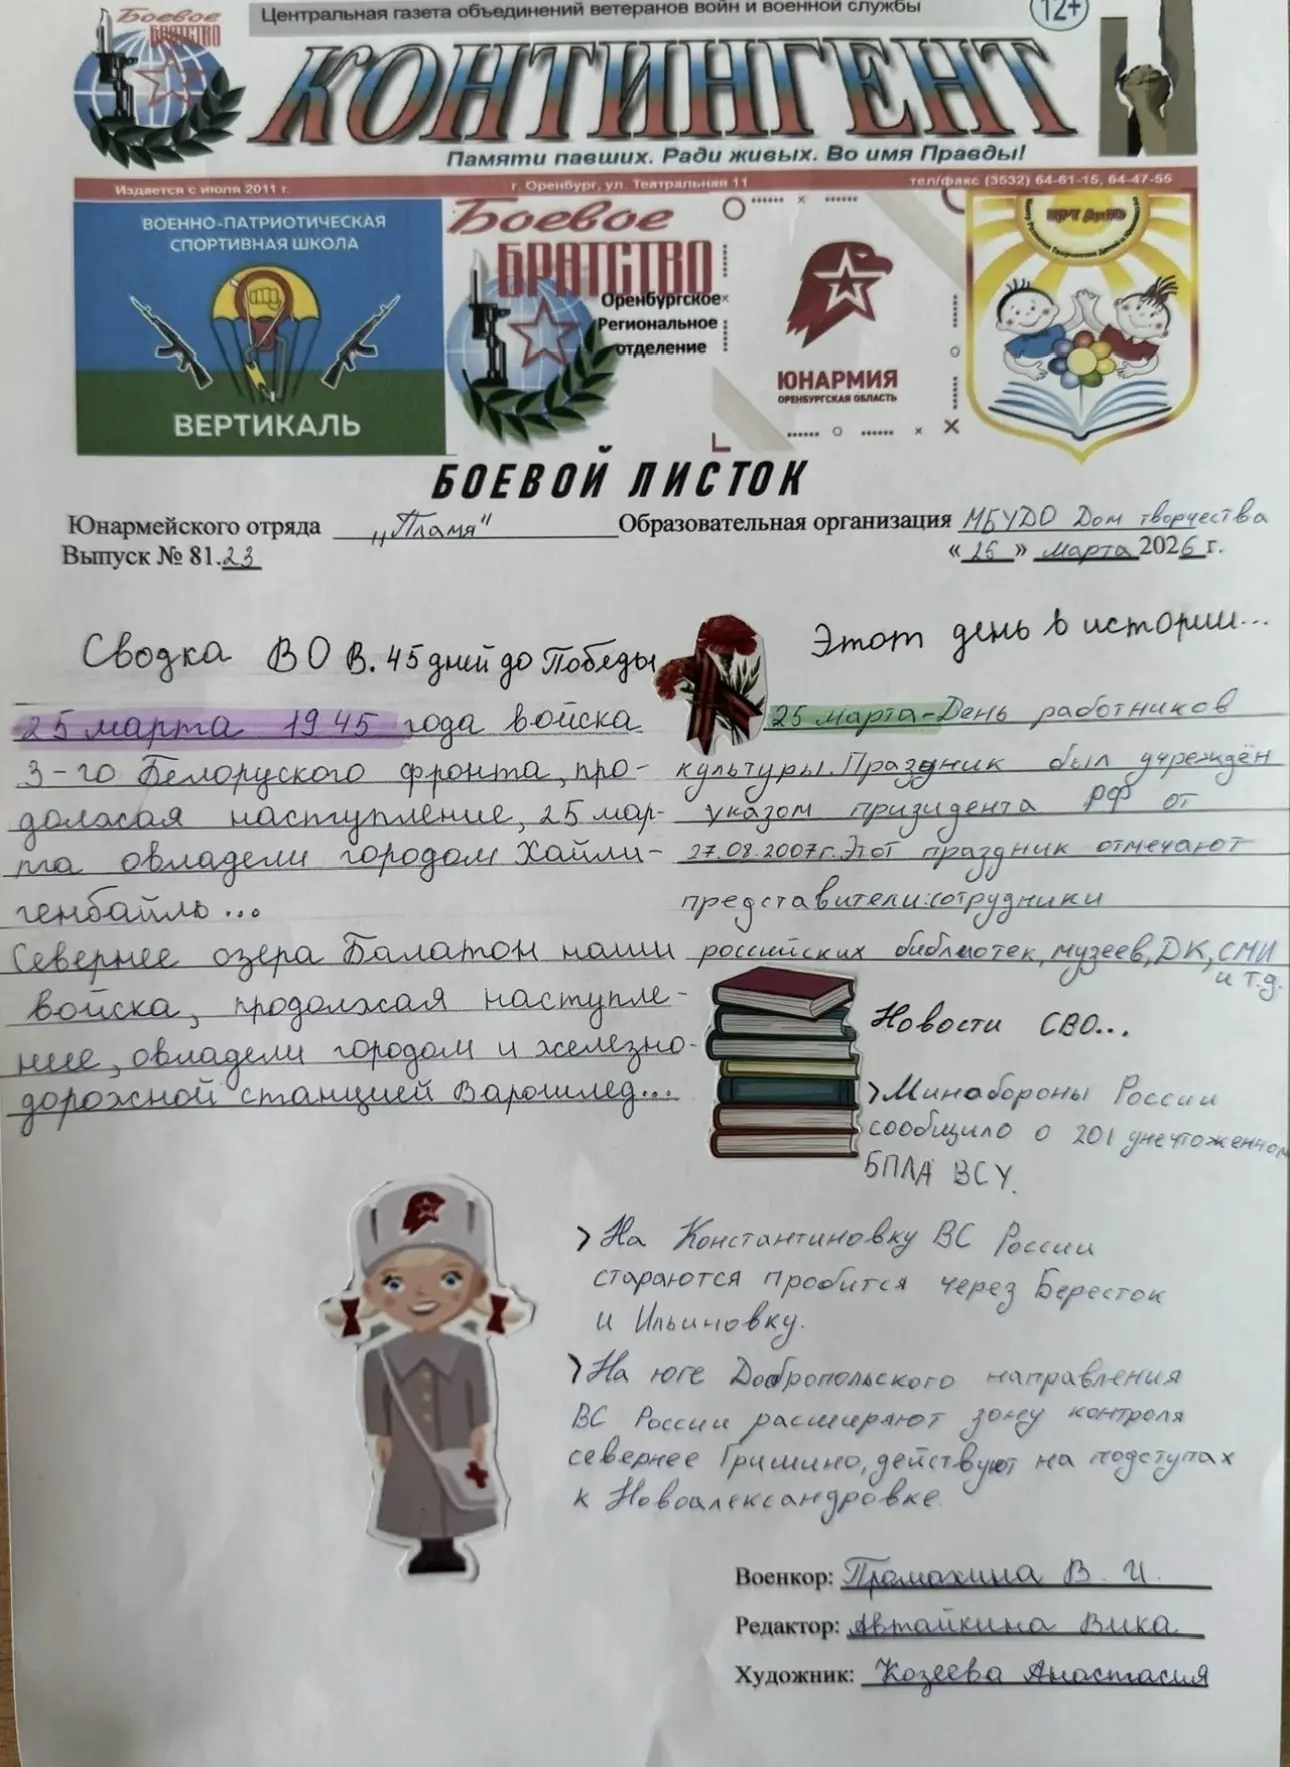 Центральная газета объединений ветеранов войн и военной службы
12+
Боевое
БРАТСТВО
КОНТИНГЕНТ
Памяти павших. Ради живых. Во имя Правды!
Издается с июля 2011 г.
г. Оренбург, ул. Театральная 11
тел/факс (3532) 64-61-15, 64-47-55
ВОЕННО-ПАТРИОТИЧЕСКАЯ
СПОРТИВНАЯ ШКОЛА
ВЕРТИКАЛЬ
Боевое
БРАТСТВО
Оренбургское
Региональное
отделение
ЮНАРМИЯ
ОРЕНБУРГСКАЯ ОБЛАСТЬ
БОЕВОЙ ЛИСТОК
Юнармейского отряда „Пламя" Образовательная организация МБУДО Дом творчества
Выпуск № 81.23 «25» марта 2026 г.
Сводка ВОВ. 45 дней до Победы
25 марта 1945 года войска
3-го Белоруского фронта, про-
должая наступление, 25 мар-
та овладели городом Хайли-
генбайль...
Севернее озера Балатон наши
войска, продолжая наступле-
ние, овладели городом и железно-
дорожной станцией Варошлед...
Этот день в истории...
25 марта-День работников
культуры. Праздник был учреждён
указом призидента РФ от
27.08.2007г. Этот праздник отмечают
представители:сотрудники
российских библиотек, музеев, ДК, СМИ
и т.д.
Новости СВО...
>Минабороны России
сообщило о 201 уничтоженном
БПЛА ВСУ.
>На Константиновку ВС России
стараются пробится через Бересток
и Ильиновку.
>На юге Добропольского направления
ВС России расширяют зону контроля
севернее Гришино, действуют на подступах
к Новоалександровке.
Военкор: Промахина В. И.
Редактор: Автайкина Вика
Художник: Козеева Анастасия